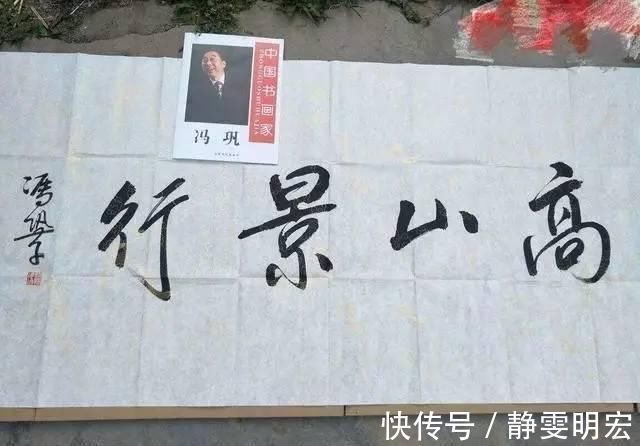 中国书画家
ZHONGGUOSHUHUAJIA
冯巩
高山景行
馮鞏
快传号 / 静雯明宏